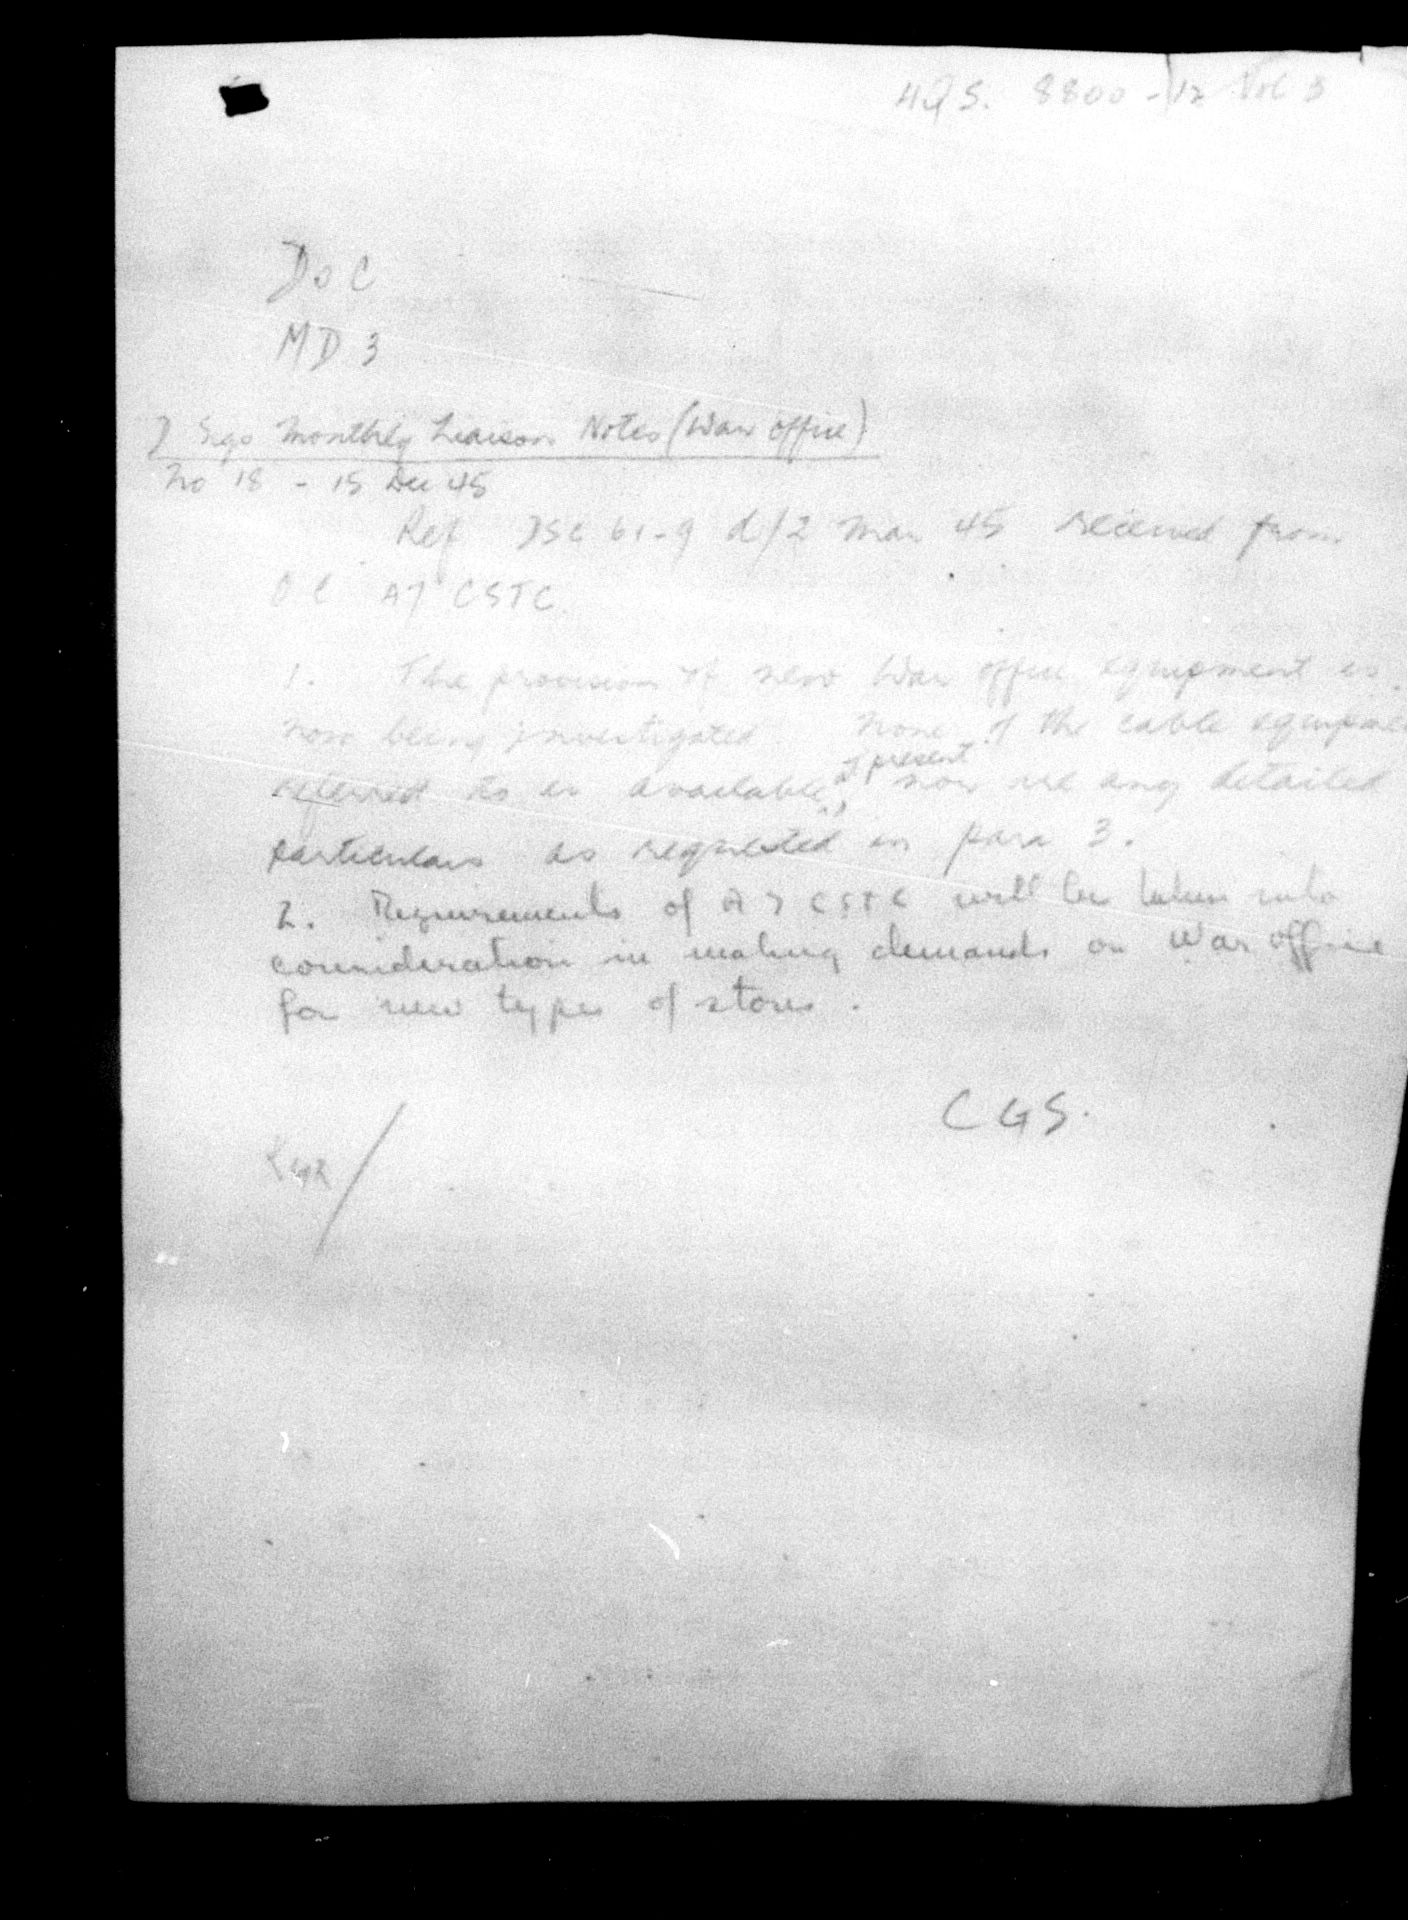 HQS. 8800-12 Vol 3
DOC
MD 3
Sigs Monthly Liaison Notes (War Office)
No 18 - 15 Dec 45
Ref 61-9 d/2 Mar 45 received from
OC A7 CSTC.
1. The provision of new War Office equipment is
now being investigated. None of the cable equipmen
referred to is available at present, nor are any detailed
particulars as requested in para 3.
2. Requirements of A7 CSTC will be taken into
consideration in making demands on War Office
for new types of stores.
CGS.